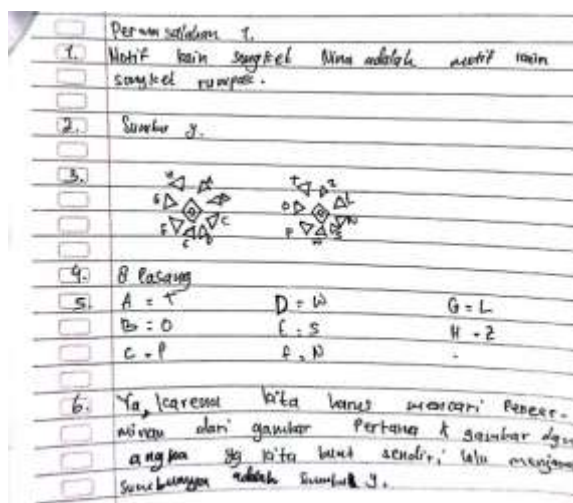 Permasalahan 1.
1. Motif kain songket Nina adalah motif kain
songket rumpak.
2. Sumbu y.
3.
H A
G D
F C
E B
T Z
O L
P N
W S
4. 8 Pasang
5. A = T D = W G = L
B = O E = S H = Z
C = P F = N
6. Ya, karena kita harus mencari Pencer-
minan dari gambar Pertama & gambar dgn
angka yg kita buat sendiri, lalu
adalah Sumbu y.